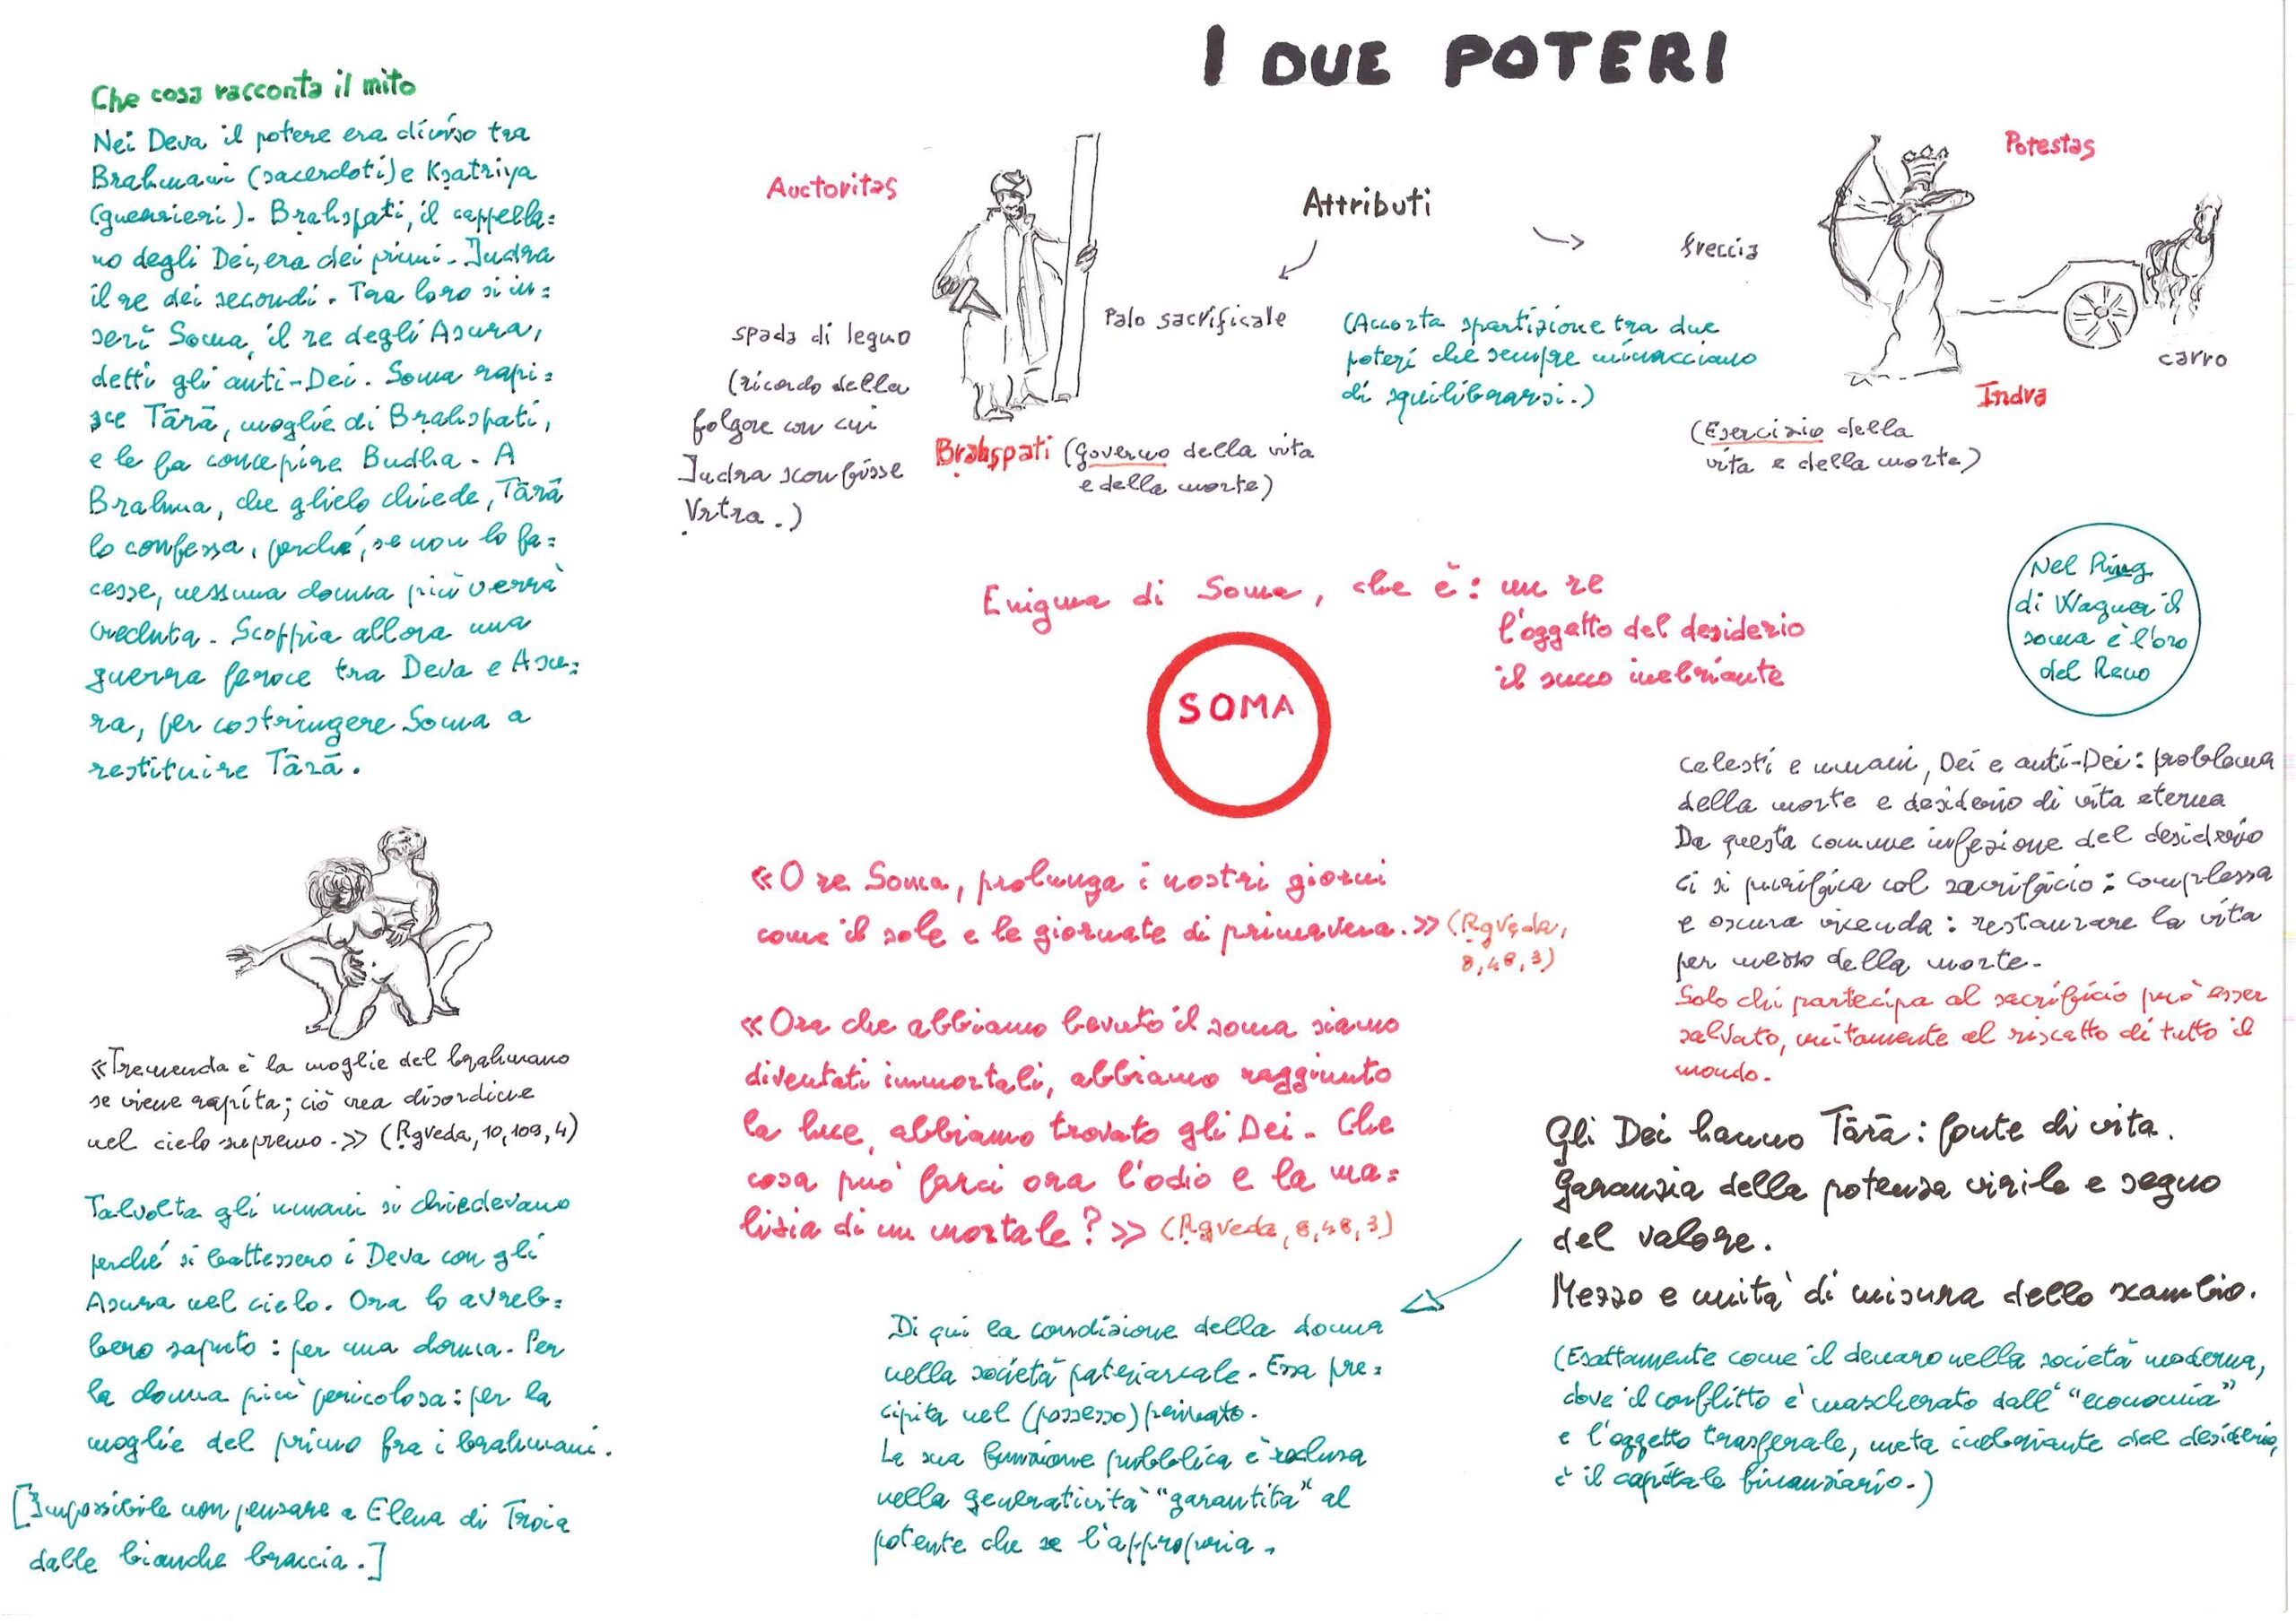 I DUE POTERI
Che cosa racconta il mito
Nei Deva il potere era diviso tra
Brahmani (sacerdoti) e Kṣatriya
(guerrieri). Bṛahspati, il cappella=
no degli Dei, era dei primi. Indra
il re dei secondi. Tra loro si in=
serì Soma, il re degli Asura,
detti gli anti-Dei. Soma rapi=
sce Tārā, moglie di Bṛahspati,
e le fa concepire Budha. A
Brahma, che glielo chiede, Tārā
lo confessa, perché, se non lo fa=
cesse, nessuna donna più verrà
creduta. Scoppia allora una
guerra feroce tra Deva e Asu=
ra, per costringere Soma a
restituire Tārā.
«Tremenda è la moglie del brahmano
se viene rapita; ciò crea disordine
nel cielo supremo.» (Ṛgveda, 10, 109, 4)
Talvolta gli umani si chiedevano
perché si battessero i Deva con gli
Asura nel cielo. Ora lo avreb=
bero saputo: per una donna. Per
la donna più pericolosa: per la
moglie del primo fra i brahmani.
[Impossibile non pensare a Elena di Troia
dalle bianche braccia.]
Auctoritas
Attributi
Potestas
spada di legno
(ricordo della
folgore con cui
Indra sconfisse
Vṛtra.)
Palo sacrificale
Bṛahspati (Governo della vita
e della morte)
(Accorta spartizione tra due
poteri che sempre minacciano
di squilibrarsi.)
freccia
carro
Indra
(Esercizio della
vita e della morte)
Enigma di Soma, che è: un re
l'oggetto del desiderio
il succo inebriante
SOMA
Nel Ring
di Wagner il
soma è l'oro
del Reno
«O re Soma, prolunga i nostri giorni
come il sole e le giornate di primavera.» (Ṛgveda,
8, 48, 3)
«Ora che abbiamo bevuto il soma siamo
diventati immortali, abbiamo raggiunto
la luce, abbiamo trovato gli Dei. Che
cosa può farci ora l'odio e la ma=
lizia di un mortale?» (Ṛgveda, 8, 48, 3)
Celesti e umani, Dei e anti-Dei: problema
della morte e desiderio di vita eterna
Da questa comune infezione del desiderio
ci si purifica col sacrificio: complessa
e oscura vicenda: restaurare la vita
per mezzo della morte.
Solo chi partecipa al sacrificio può esser
salvato, unitamente al riscatto di tutto il
mondo.
Gli Dei hanno Tārā: fonte di vita.
Garanzia della potenza virile e segno
del valore.
Mezzo e unità di misura dello scambio.
(Esattamente come il denaro nella società moderna,
dove il conflitto è mascherato dall' "economia"
e l'oggetto trasferale, meta inebriante del desiderio,
è il capitale finanziario.)
Di qui la condizione della donna
nella società patriarcale. Essa pre=
cipita nel (possesso) privato.
La sua funzione pubblica è reclusa
nella generatività "garantita" al
potente che se l'appropria.